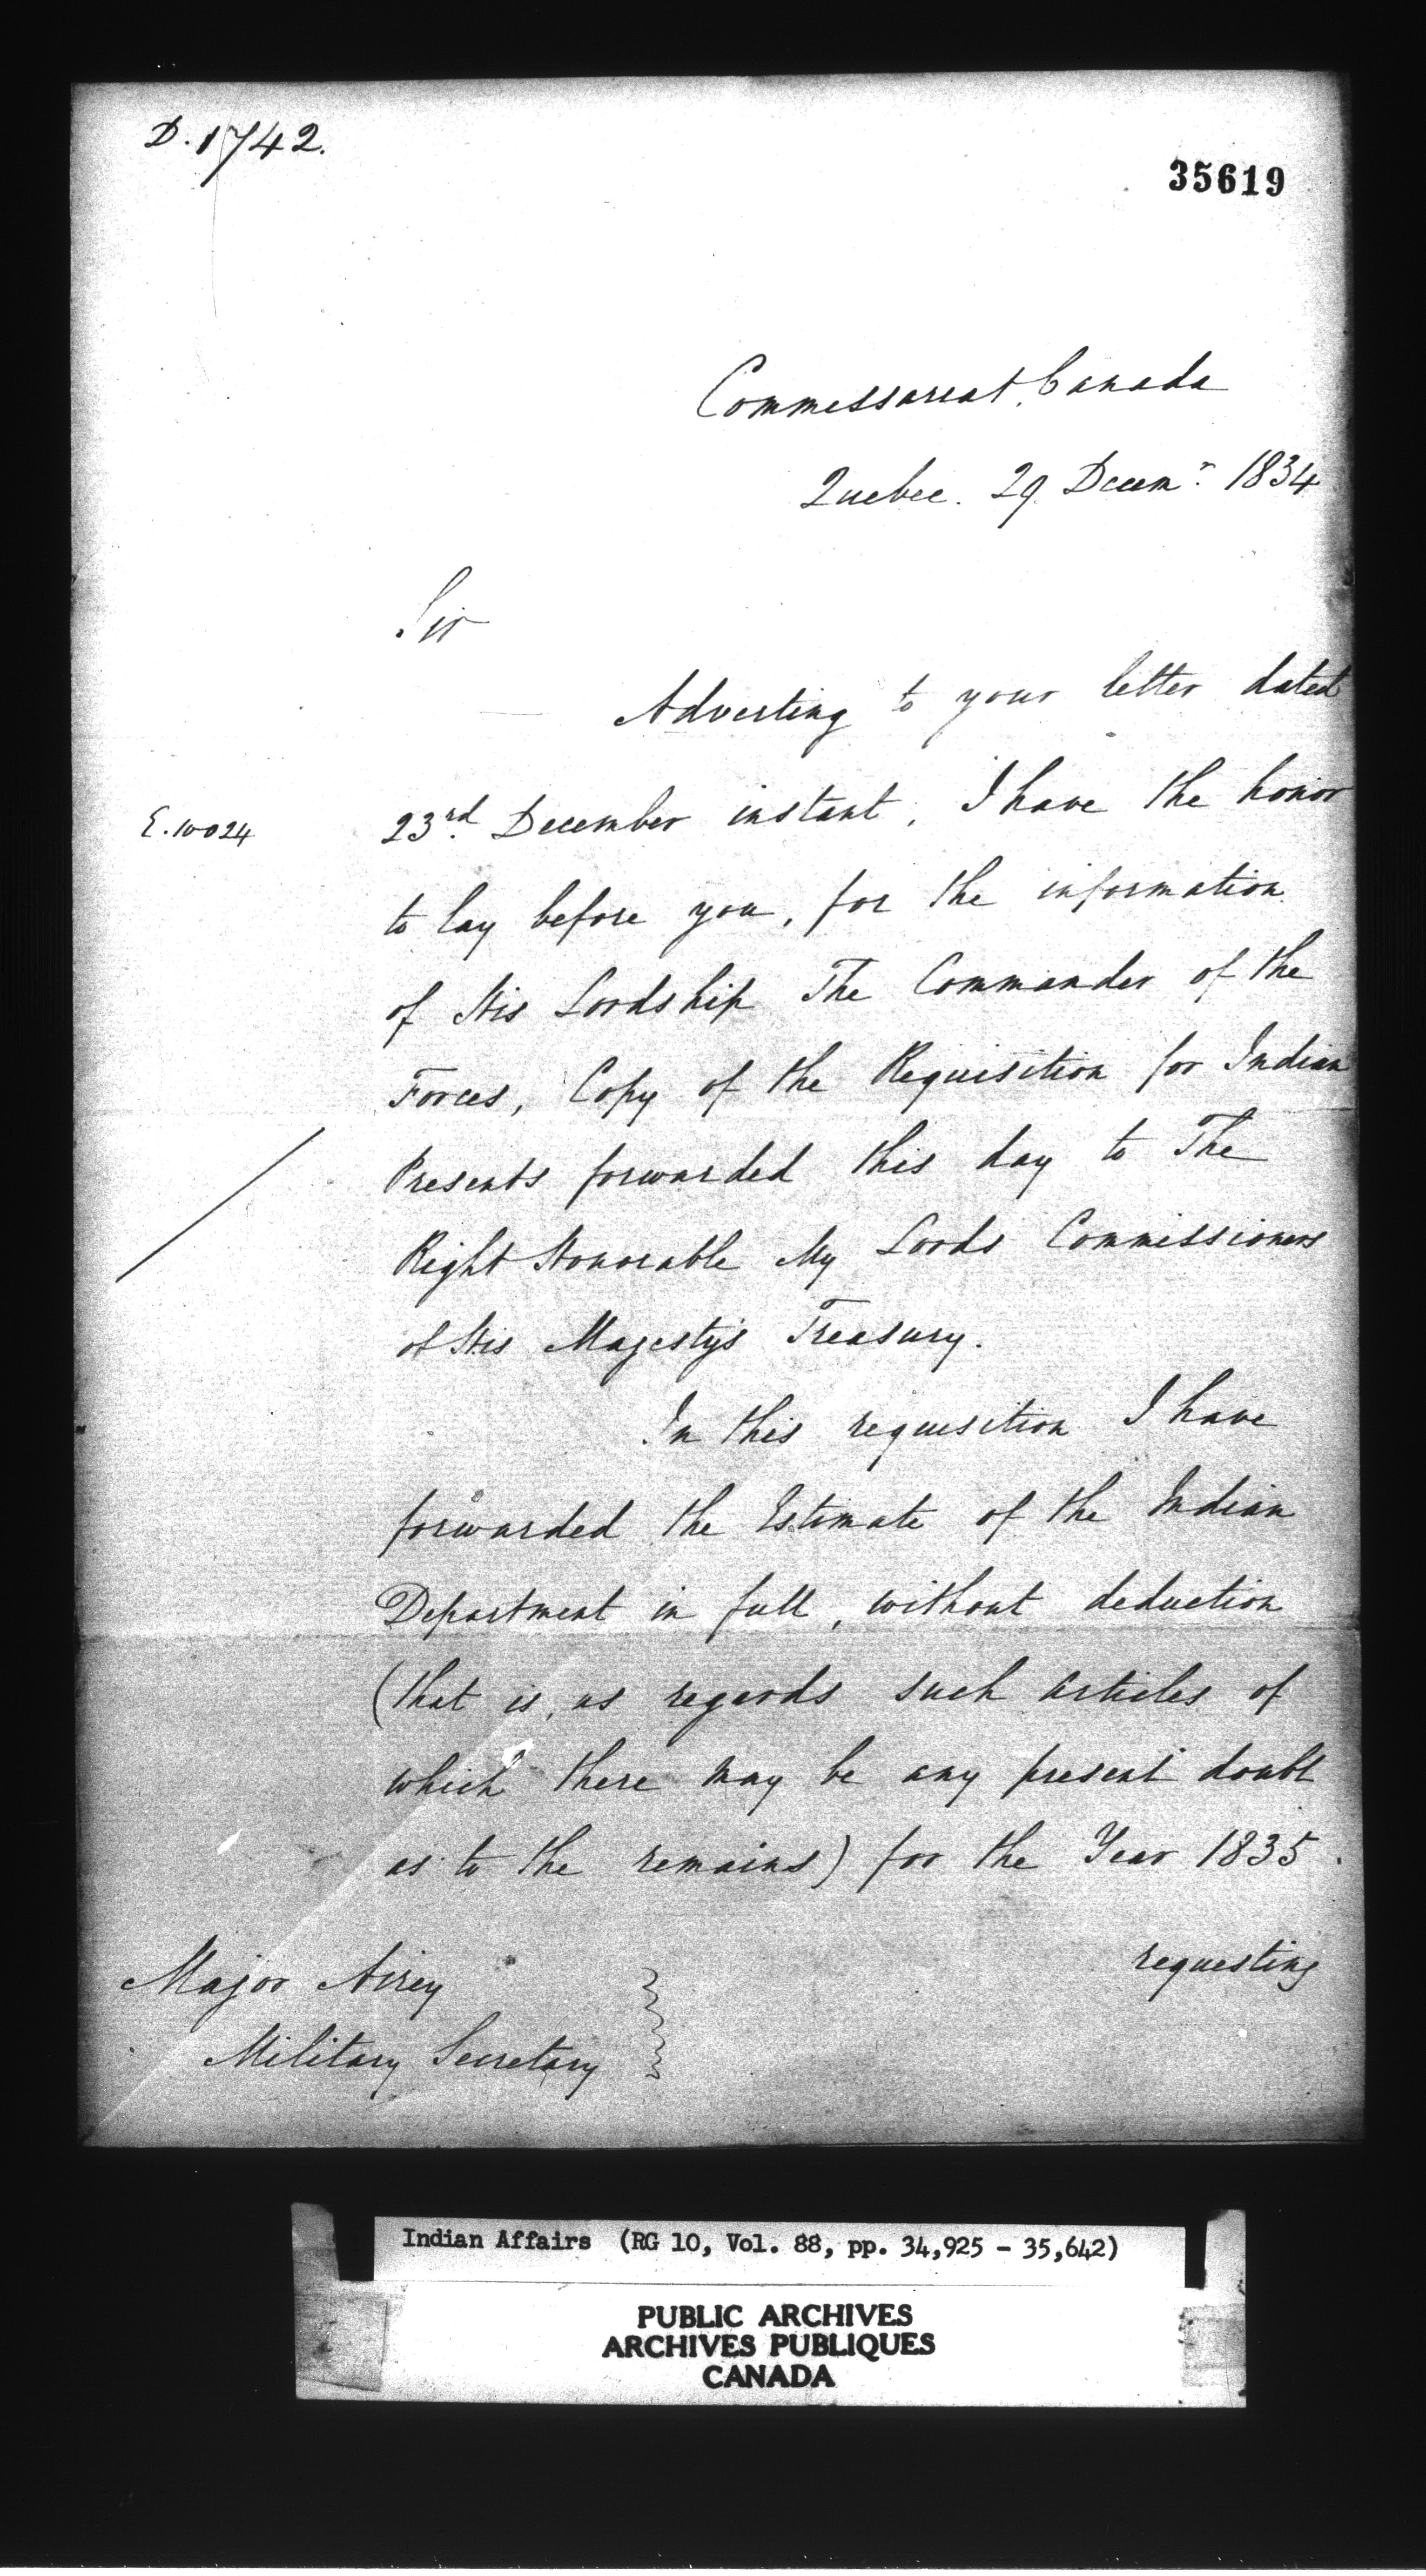 D. 1742.
35619
Commissariat, Canada
Quebec. 29 Decemr. 1834
Sir
Adverting to your letter dated
E. 10024
23rd December instant, I have the honor
to lay before you, for the information
of His Lordship The Commander of the
Forces, Copy of the Requisition for Indian
Presents forwarded this day to The
Right Honorable My Lords Commissioners
of His Majesty's Treasury.
In this requisition I have
forwarded the Estimate of the Indian
Department in full, without deduction
(that is, as regards such articles of
which there may be any present doubt
as to the remains) for the Year 1835.
requesting
Major Airey
Military Secretary
Indian Affairs (RG 10, Vol. 88, pp. 34,925 - 35,642)
PUBLIC ARCHIVES
ARCHIVES PUBLIQUES
CANADA